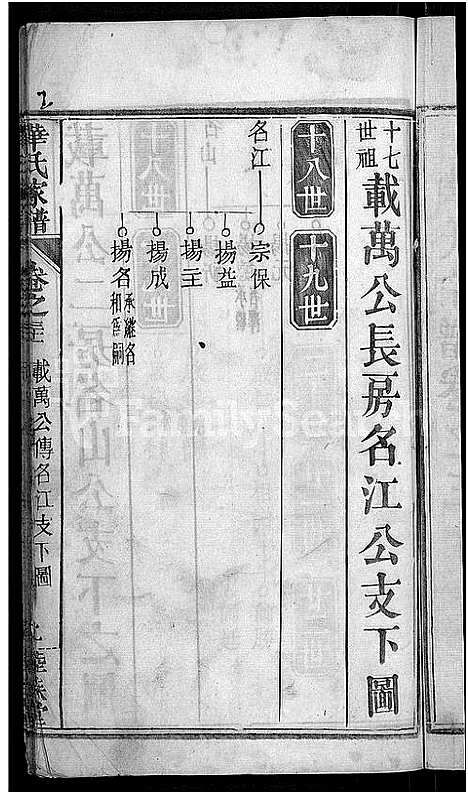 十七世祖
載萬公長房名江公支下圖
十八世
十九世
名江
宗保
揚益
揚主
揚成
揚名
承継名和爲嗣
華氏家譜
卷之三
載萬公傳名江支下圖